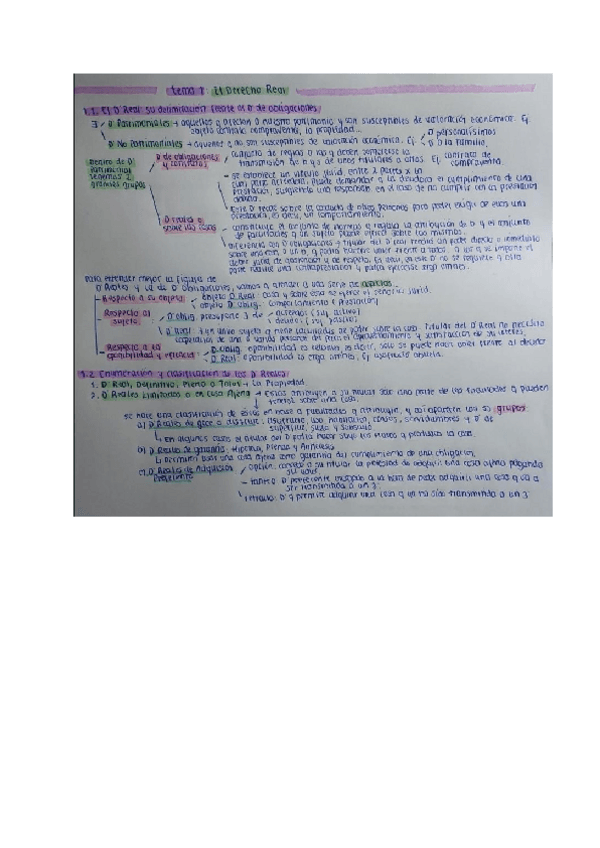 tema 1: El Derecho Real
1.1. El D Real: su delimitación frente al D de obligaciones
∃ D Patrimoniales → aquellos q afectan a nuestro patrimonio y son susceptibles de valoración económica. Ej.
contrato compraventa, la propiedad...
D No Patrimoniales → aquellos q no son susceptibles de valoración económica. Ej.
D personalísimos
D la familia
Dentro de D
patrimonial
2
grandes grupos
D de obligaciones
y contratos
conjunto de reglas a las q deben someterse la
transmisión de q y s de unos titulares a otros. Ej. contrato de
compraventa
se establece un vínculo jurid. entre 2 partes x la
el cumplimiento de una
prestación, en el caso de no cumplir con la prestación
Este D recae sobre la conducta de otras personas para poder exigir de ellas una
es decir, un comportamiento.
D reales o
sobre las cosas
conjunto de normas q regulan la atribución de D y el conjunto
de facultades q un sujeto puede ejercer sobre las mismas.
diferencia con D obligaciones: el titular del D real tendrá un poder directo e inmediato
sobre
deber jurid. de abstención y de respeto. Es decir, en este D no se requiere q otra
parte realice una contraprestación y podrá ejercerse erga omnes.
Para entender mejor la figura de
D Reales y la de D obligaciones, vamos a atender a una serie de aspectos:
Respecto a su objeto:
objeto D Real: cosa y sobre ésta se ejerce el señorío jurid.
objeto D oblig: comportamiento o prestación
Respecto al
sujeto:
D oblig. presupone ∃ de
acreedor (suj. activo)
deudor (suj. pasivo)
D Real: un único sujeto q tiene facultades de poder sobre la cosa. Titular del D Real no necesita
cooperación de una segunda persona para el aprovechamiento y satisfacción de su interés.
Respecto a la
oponibilidad y eficacia:
D oblig: oponibilidad es relativa, es decir, solo se puede hacer valer frente al deudor
D Real: oponibilidad es erga omnes, eficacia absoluta.
1.2 Enumeración y clasificación de los D Reales
1. D Real, Definitivo, Pleno o Total → La Propiedad.
2. D Reales Limitados o en cosa Ajena → Estos atribuyen a su titular solo una parte de las facultades q pueden
tenerse sobre una cosa.
se hace una clasificación de estos en base a facultades q atribuyen, y así aparecen los sig. grupos
a) D Reales de goce o disfrute: usufructo, uso, habitación, censos, servidumbres y D de
superficie, vuelo y subsuelo
↳ en algunos casos el titular del D podrá hacer suyos los frutos q produzca la cosa.
b) D Reales de garantía: Hipoteca, Prenda y Anticresis
↳ permiten usar una cosa ajena como garantía del cumplimiento de una obligación.
c) D Reales de Adquisición
Preferente
opción: concede a su titular la posibilidad de adquirir una cosa ajena pagando
su valor.
tanteo: D preferente a la hora de poder adquirir una cosa q va a
ser transmitida a un 3º
retracto: D q permite adquirir una cosa q ya ha sido transmitida a un 3º